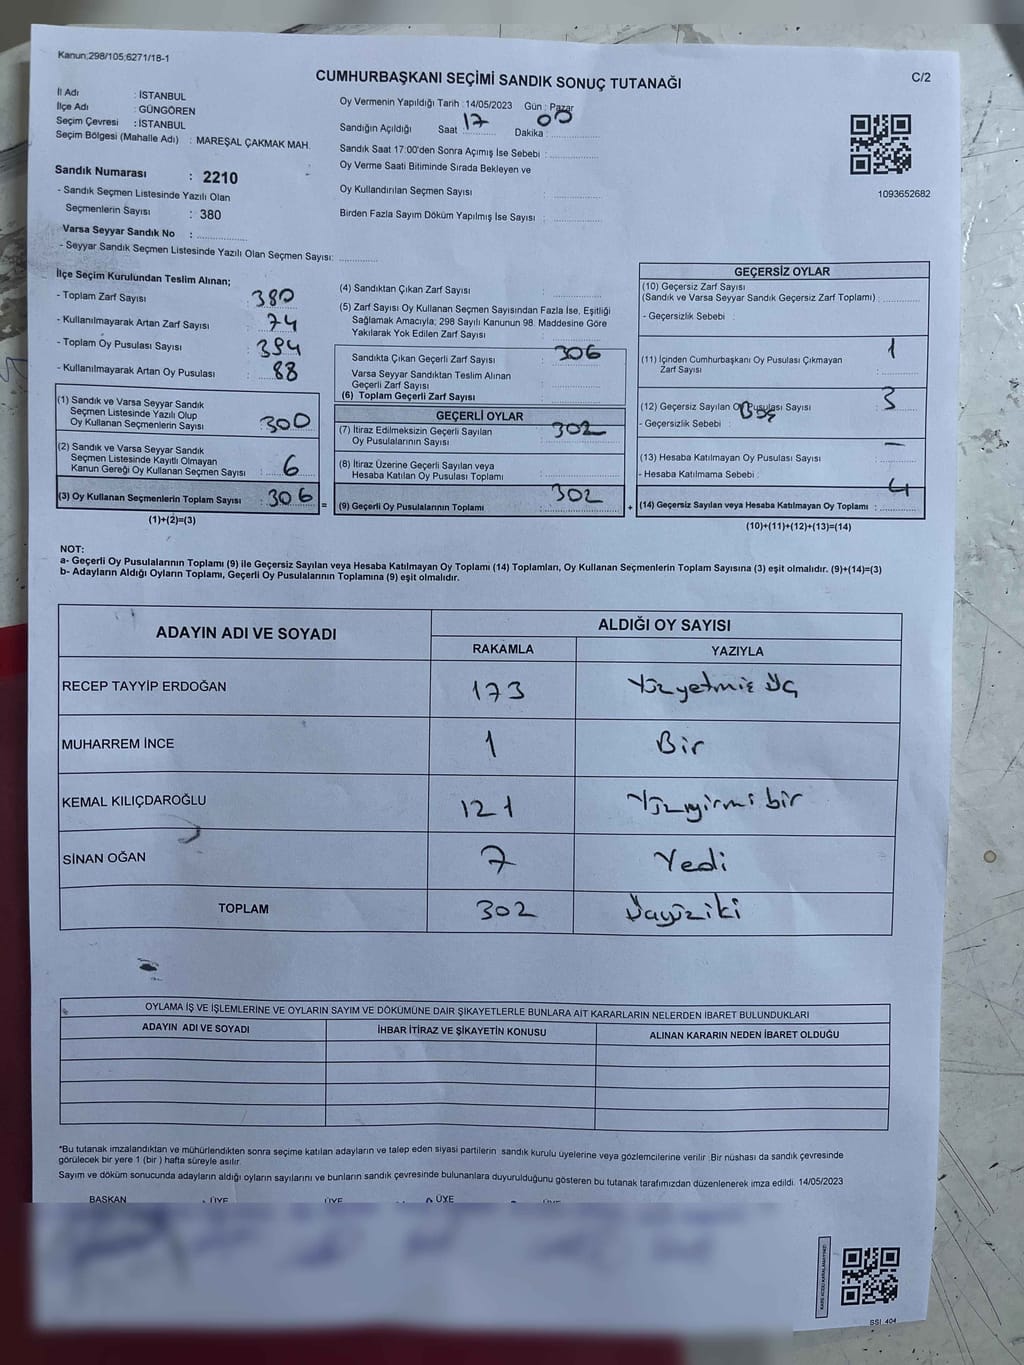 Kanun;298/105;6271/18-1
CUMHURBAŞKANI SEÇİMİ SANDIK SONUÇ TUTANAĞI
C/2
İl Adı : İSTANBUL
İlçe Adı : GÜNGÖREN
Seçim Çevresi : İSTANBUL
Seçim Bölgesi (Mahalle Adı) : MAREŞAL ÇAKMAK MAH.
Oy Vermenin Yapıldığı Tarih :14/05/2023 Gün : Pazar
Sandığın Açıldığı Saat 17 Dakika : 00
Sandık Saat 17:00'den Sonra Açımış İse Sebebi :
Oy Verme Saati Bitiminde Sırada Bekleyen ve
Oy Kullandırılan Seçmen Sayısı
Birden Fazla Sayım Döküm Yapılmış İse Sayısı :
1093652682
Sandık Numarası : 2210
- Sandık Seçmen Listesinde Yazılı Olan
Seçmenlerin Sayısı : 380
Varsa Seyyar Sandık No :
- Seyyar Sandık Seçmen Listesinde Yazılı Olan Seçmen Sayısı:
İlçe Seçim Kurulundan Teslim Alınan;
- Toplam Zarf Sayısı : 380
- Kullanılmayarak Artan Zarf Sayısı : 74
- Toplam Oy Pusulası Sayısı : 394
- Kullanılmayarak Artan Oy Pusulası : 88
(1) Sandık ve Varsa Seyyar Sandık
Seçmen Listesinde Yazılı Olup
Oy Kullanan Seçmenlerin Sayısı : 300
(2) Sandık ve Varsa Seyyar Sandık
Seçmen Listesinde Kayıtlı Olmayan
Kanun Gereği Oy Kullanan Seçmen Sayısı : 6
(3) Oy Kullanan Seçmenlerin Toplam Sayısı : 306
(1)+(2)=(3)
=
(4) Sandıktan Çıkan Zarf Sayısı
(5) Zarf Sayısı Oy Kullanan Seçmen Sayısından Fazla İse, Eşitliği
Sağlamak Amacıyla; 298 Sayılı Kanunun 98. Maddesine Göre
Yakılarak Yok Edilen Zarf Sayısı
Sandıkta Çıkan Geçerli Zarf Sayısı : 306
Varsa Seyyar Sandıktan Teslim Alınan
Geçerli Zarf Sayısı
(6) Toplam Geçerli Zarf Sayısı
GEÇERLİ OYLAR
(7) İtiraz Edilmeksizin Geçerli Sayılan
Oy Pusulalarının Sayısı : 302
(8) İtiraz Üzerine Geçerli Sayılan veya
Hesaba Katılan Oy Pusulası Toplamı
(9) Geçerli Oy Pusulalarının Toplamı : 302
+
GEÇERSİZ OYLAR
(10) Geçersiz Zarf Sayısı
(Sandık ve Varsa Seyyar Sandık Geçersiz Zarf Toplamı) :
- Geçersizlik Sebebi :
(11) İçinden Cumhurbaşkanı Oy Pusulası Çıkmayan
Zarf Sayısı : 1
(12) Geçersiz Sayılan Oy Pusulası Sayısı : 3
- Geçersizlik Sebebi : Boş
(13) Hesaba Katılmayan Oy Pusulası Sayısı : -
- Hesaba Katılmama Sebebi :
(14) Geçersiz Sayılan veya Hesaba Katılmayan Oy Toplamı : 4
(10)+(11)+(12)+(13)=(14)
NOT:
a- Geçerli Oy Pusulalarının Toplamı (9) ile Geçersiz Sayılan veya Hesaba Katılmayan Oy Toplamı (14) Toplamları, Oy Kullanan Seçmenlerin Toplam Sayısına (3) eşit olmalıdır. (9)+(14)=(3)
b- Adayların Aldığı Oyların Toplamı, Geçerli Oy Pusulalarının Toplamına (9) eşit olmalıdır.
ADAYIN ADI VE SOYADI
ALDIĞI OY SAYISI
RAKAMLA YAZIYLA
RECEP TAYYİP ERDOĞAN 173 Yüzyetmiş üç
MUHARREM İNCE 1 Bir
KEMAL KILIÇDAROĞLU 121 Yüzyirmi bir
SİNAN OĞAN 7 Yedi
TOPLAM 302 Üçyüziki
OYLAMA İŞ VE İŞLEMLERİNE VE OYLARIN SAYIM VE DÖKÜMÜNE DAİR ŞİKAYETLERLE BUNLARA AİT KARARLARIN NELERDEN İBARET BULUNDUKLARI
ADAYIN ADI VE SOYADI İHBAR İTİRAZ VE ŞİKAYETİN KONUSU ALINAN KARARIN NEDEN İBARET OLDUĞU
*Bu tutanak imzalandıktan ve mühürlendikten sonra seçime katılan adayların ve talep eden siyasi partilerin sandık kurulu üyelerine veya gözlemcilerine verilir Bir nüshası da sandık çevresinde
görülecek bir yere 1 (bir ) hafta süreyle asılır.
Sayım ve döküm sonucunda adayların aldığı oyların sayılarını ve bunların sandık çevresinde bulunanlara duyurulduğunu gösteren bu tutanak tarafımızdan düzenlenerek imza edildi. 14/05/2023
BAŞKAN ÜYE ÜYE ÜYE ÜYE
SSI_404